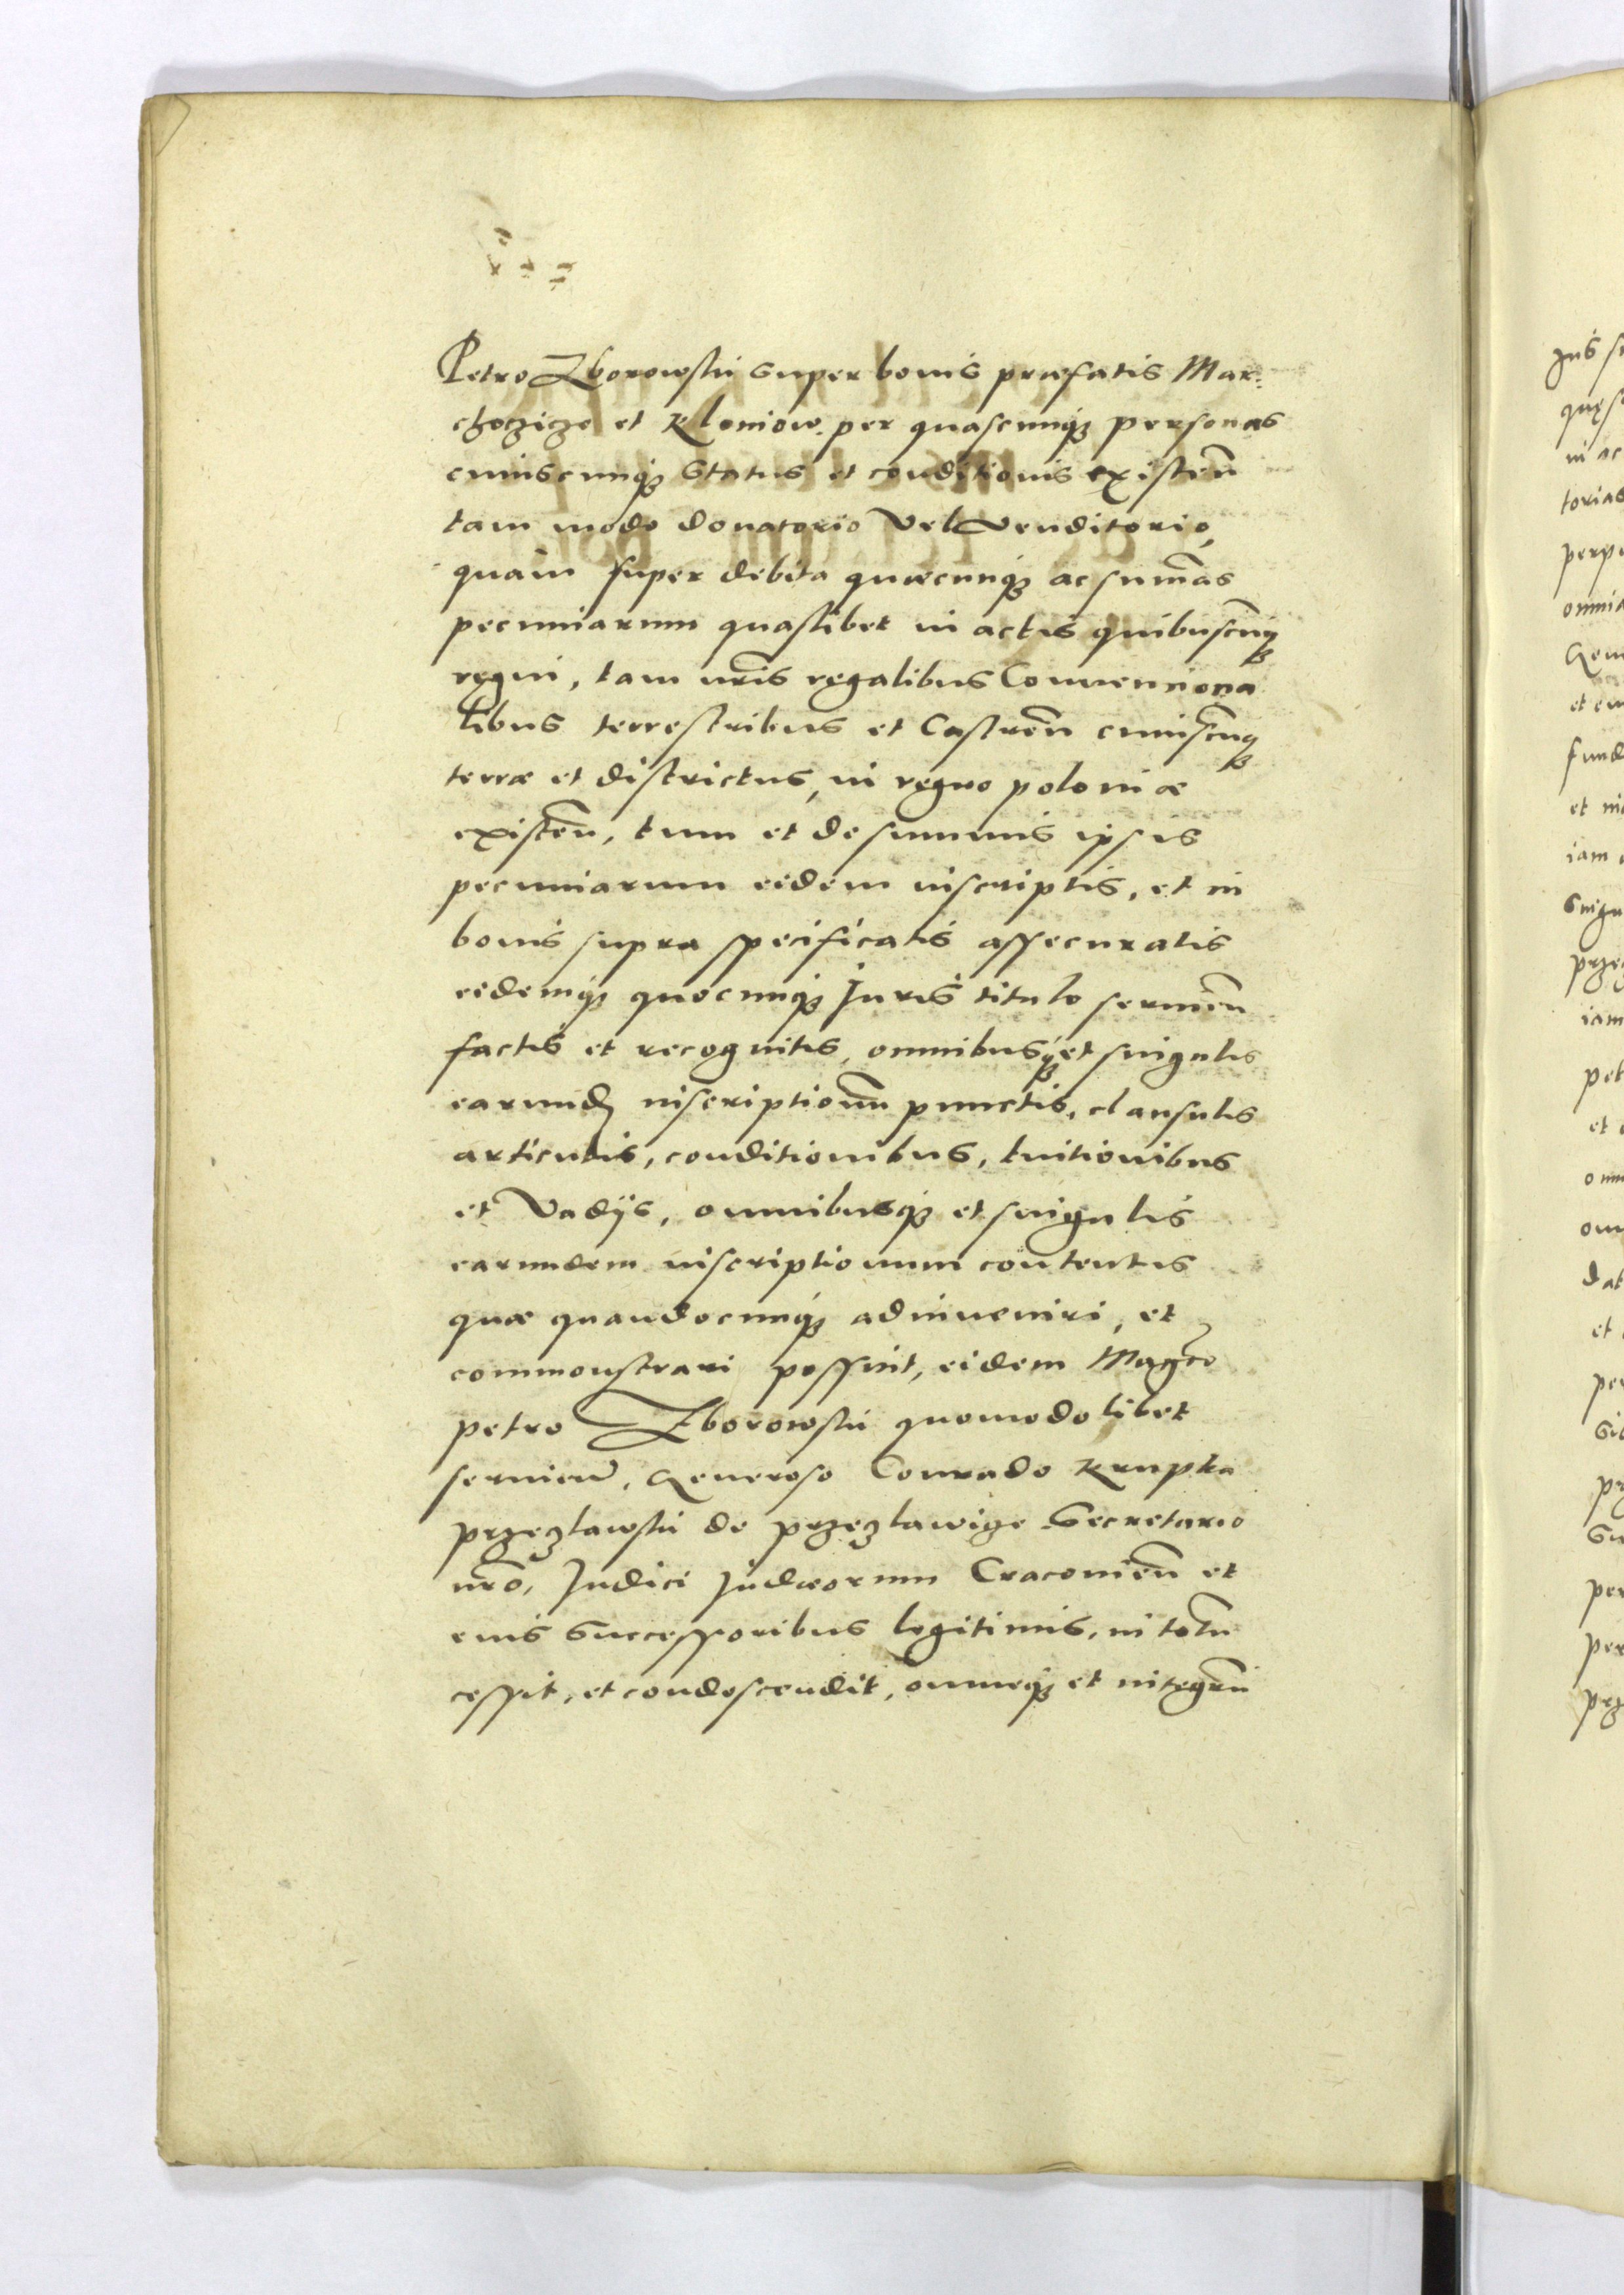 Petro Zborowskii super bonis præfatis Mar:
choczicze et Kloniow. per quascunq3 personas
cuiuscunq3 Status et conditionis existeñ
tam modo donatorio Vel Venditorio,
quam super debita quæcunq3 ac sum̃as
pecuniarum quaslibet in actis quibuscũq3
regni, tam nr̃is regalibus Conuenciona
libus terrestribus et Castreñ cuiuscũq3
terræ et districtus, in regno poloniæ
existeñ, tum et de summis ipsis
pecuniarum eidem inscriptis, et in
bonis supra specificatis assecuratis
eidemq3 quocunq3 Juris titulo seruieñ
factis et recognitis, omnibusq3 et singulis
earund inscriptionũ punctis, clausulis
articulis, conditionibus, tuitionibus
et Vadijs, omnibusq3 et singulis
earundem inscriptionum contentis
quæ quandocunq3 adinueniri, et
commonstrari possint, eidem Magco
petro Zborowskii quomodolibet
seruieñ, Generoso Conrado Krupka
przeczlawskii de przeczlawicze Secretario
nr̃o, Judici Judæorum Cracouieñ et
eius Successoribus legitimis, in totũ
cessit, et condescendit, omneq3 et integrũ